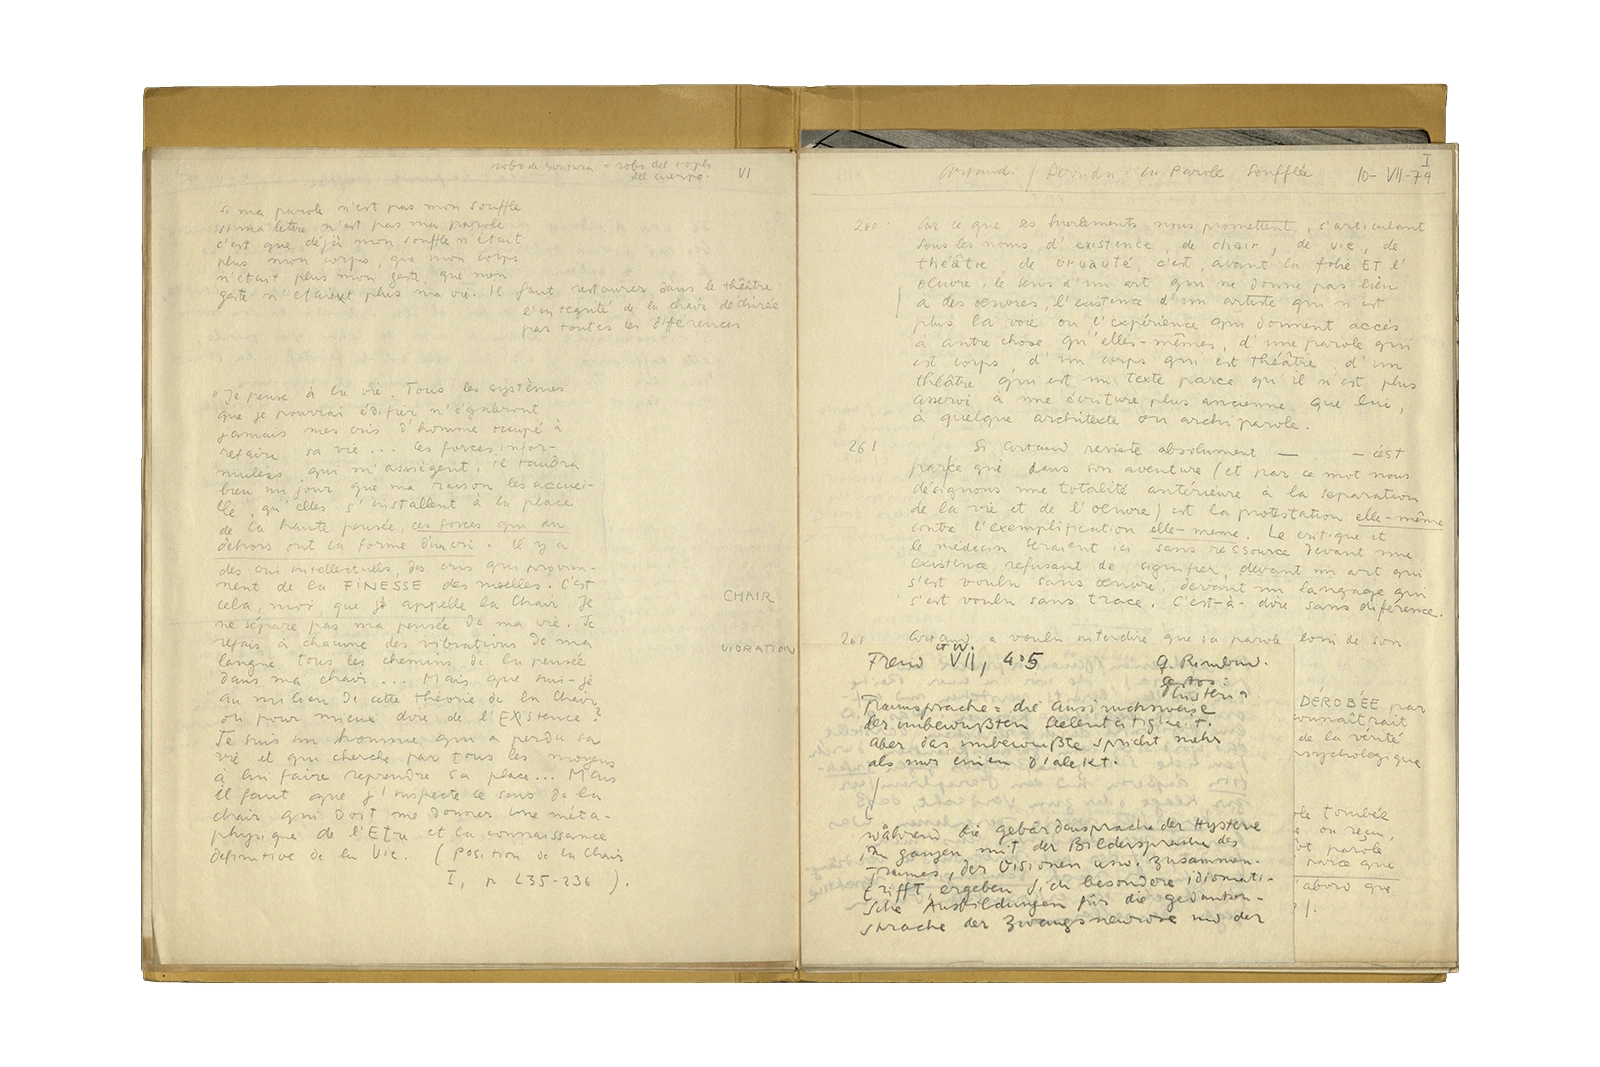 robo de escritura = robo del soplo
del cuerpo.
VI
si ma parole n'est pas mon souffle
si ma lettre n'est pas ma parole
c'est que déjà mon souffle n'était
plus mon corps, que mon corps
n'était plus mon geste, que mon
geste n'était plus ma vie. Il faut restaurer dans le théâtre
l'integrité de la chair déchirée
par toutes les différences
"Je pense à la vie. Tous les systèmes
que je pourrai édifier n'égaleront
jamais mes cris d'homme occupé à
refaire sa vie ... les forces infor-
mulées qui m'assiègent, il faudra
bien un jour que ma raison les accuei-
lle, qu'elles s'installent à la place
de la haute pensée, ces forces qui du
dehors ont la forme d'un cri. Il y a
des cris intellectuels, des cris qui provien-
nent de la FINESSE des moelles. C'est
cela, moi, que j'appelle la Chair. Je
ne sépare pas ma pensée de ma vie. Je
refais à chacune des vibrations de ma
langue tous les chemins de la pensée
dans ma chair ... Mais que suis-je
au milieu de cette théorie de la Chair
ou pour mieux dire de l'EXistence?
Je suis un homme qui a perdu sa
vie et qui cherche par tous les moyens
à lui faire reprendre sa place... Mais
il faut que j'inspecte ce sens de la
chair qui doit me donner une méta-
physique de l'Etre et la connaissance
definitive de la Vie. (Position de la Chair
I, p 235-236 ).
CHAIR
VIBRATION
I
Artaud / Derrida: La Parole Soufflée 10-VII-74
260: Car ce que ses hurlements nous promettent, s'articulant
sous les noms d'existence, de chair, de vie, de
théâtre, de cruauté, c'est avant la folie ET l'
oeuvre, le sens d'un art qui ne donne pas lieu
à des oeuvres, l'existence d'un artiste qui n'est
plus la voie ou l'expérience qui donnent accès
à autre chose qu'elles-mêmes, d'une parole qui
est corps, d'un corps qui est théâtre, d'un
théâtre qui est un texte parce qu'il n'est plus
asservi à une écriture plus ancienne que lui,
à quelque architexte ou archiparole.
261 Si Artaud resiste absolument — . — c'est
parce que dans son aventure (et par ce mot nous
désignons une totalité antérieure à la separation
de la vie et de l'oeuvre) est la protestation elle-même
contre l'exemplification elle-meme. Le critique et
le médecin seraient ici sans ressource devant une
existence refusant de signifier, devant un art qui
s'est voulu sans œuvre, devant un langage qui
s'est voulu sans trace. C'est-à-dire sans diférence.
261 Artaud a voulu interdire que sa parole loin de son
G.W.
Freud VII, 405
Traumsprache = die Ausdrucksweise
der unbewußten Seelentätigkeit.
Aber das unbewußte spricht mehr
als nur einen Dialekt.
während die gebärdensprache der Hysterie
im ganzen mit der Bildersprache des
Traumes, der Visionen usw. zusammen-
trifft, ergeben sich besondere idiomati-
sche Ausbildungen für die gedanken-
sprache der Zwangsneurose und der
DÉROBÉE par
connaîtrait
de la vérité
psychologique
tombée
ou reçu,
parole
parce que
abord que